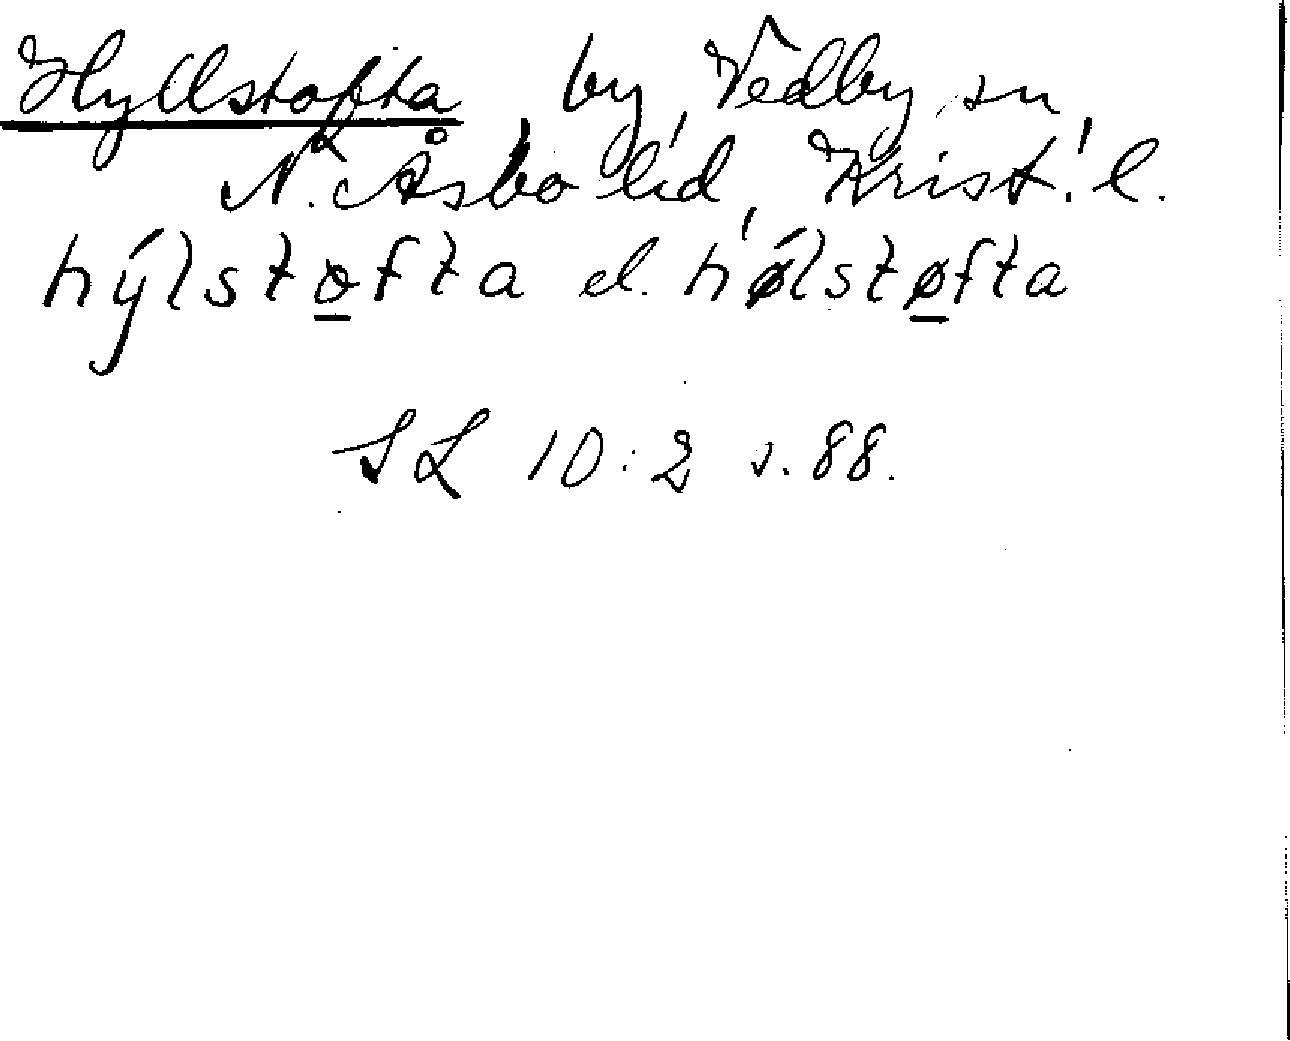 Hyllstofta by, Vedby sn
N. Åsbo hd, Krist. l.
hýlsto̲fta el. hǿlstø̲fta
SL 10:2 s. 88.